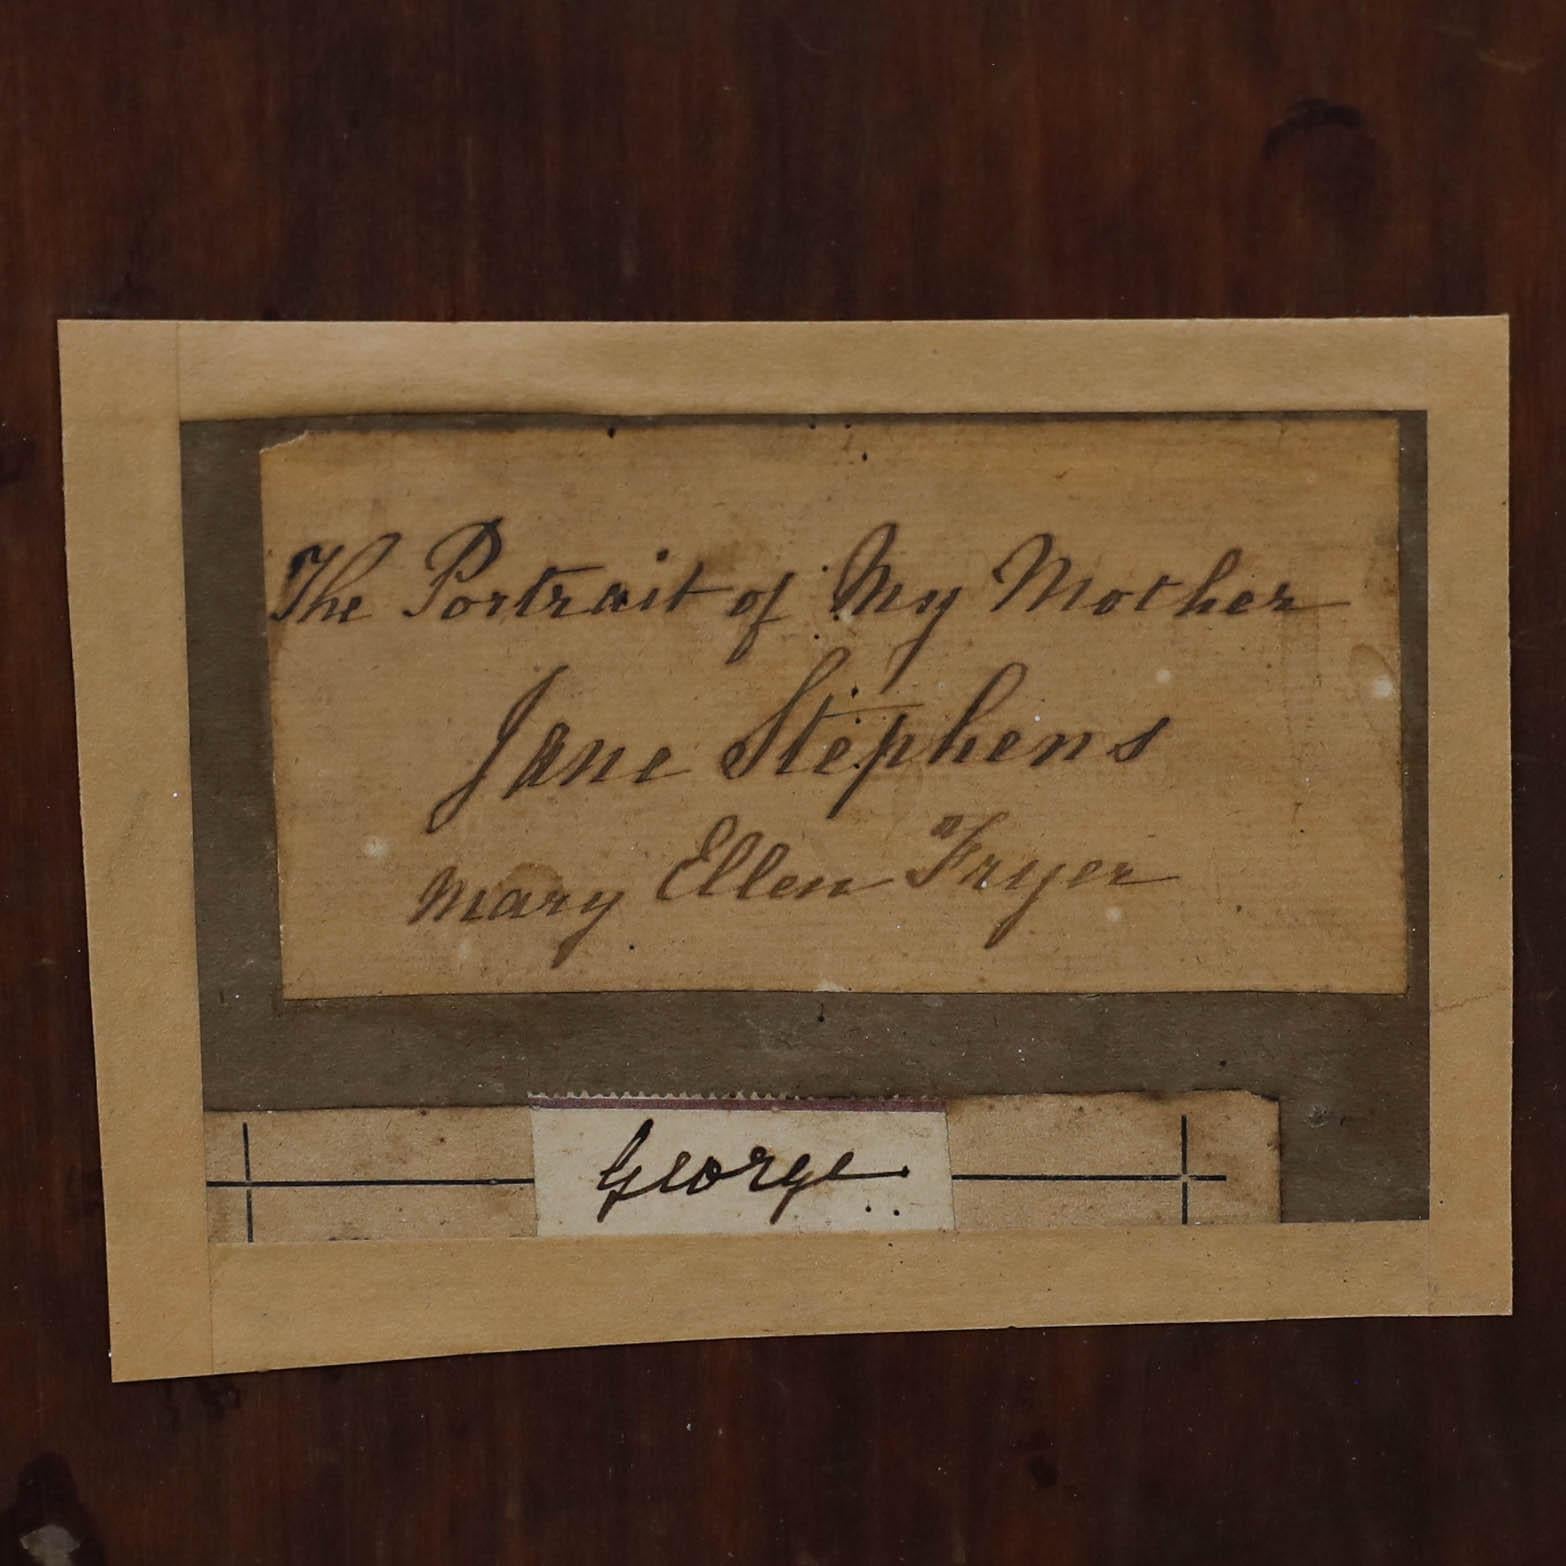 The Portrait of My Mother
Jane Stephens
Mary Ellen Fryer
George.